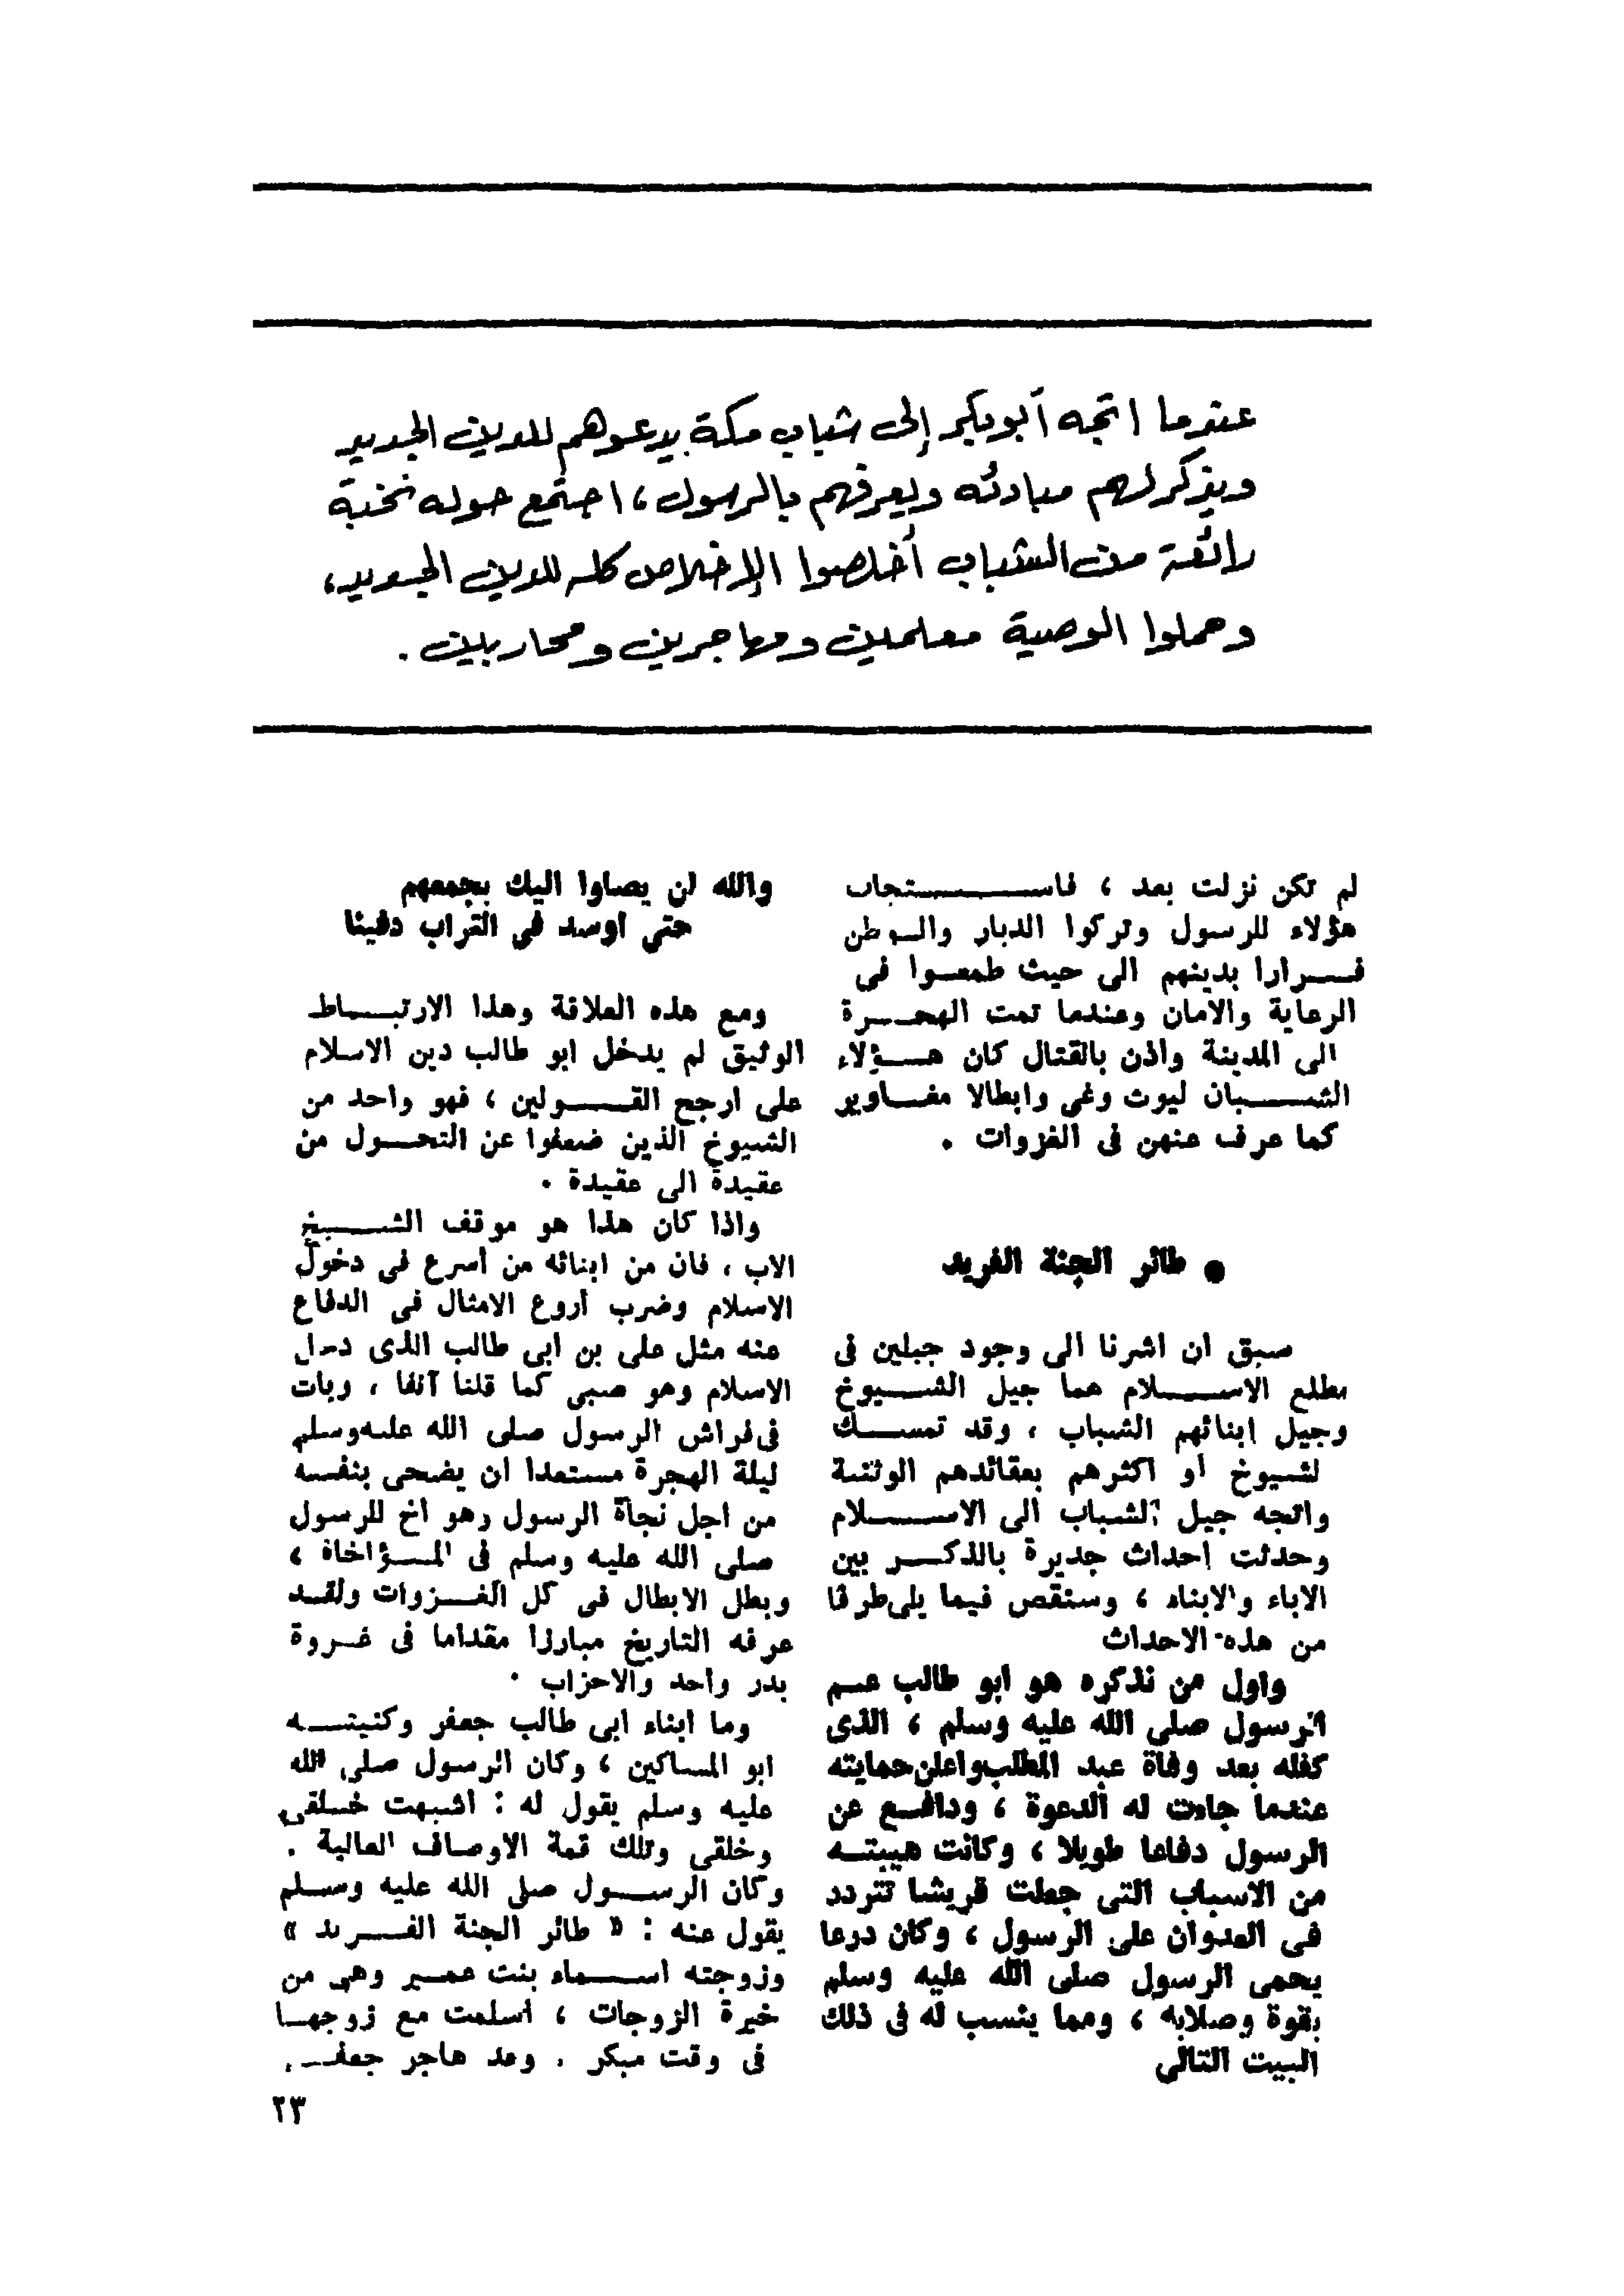 عندما اتجه أبوبكر إلى شباب مكة يدعوهم للدين الجديد
ويذكر لهم مبادئه ويعرفهم بالرسول ، اجتمع حوله نخبة
رائعة من الشباب أخلصوا الإخلاص كله للدين الجديد ،
وحملوا الوصية معلمين ومهاجرين ومحاربين .
لم تكن نزلت بعد ، فاستجاب
هؤلاء للرسول وتركوا الديار والوطن
فرارا بدينهم الى حيث طمعوا فى
الرعاية والامان وعندما تمت الهجرة
الى المدينة واذن بالقتال كان هؤلاء
الشبان ليوث وغى وابطالا مغاوير
كما عرف عنهن فى الغزوات .
● طائر الجنة الفريد
سبق ان اشرنا الى وجود جبلين فى
مطلع الاسلام هما جيل الشيوخ
وجيل ابنائهم الشباب ، وقد تمسك
لشيوخ أو اكثرهم بعقائدهم الوثنية
واتجه جيل الشباب الى الاسلام
وحدثت احداث جديرة بالذكر بين
الاباء والابناء ، وسنقص فيما يلى طرفا
من هذه الاحداث
واول من نذكره هو ابو طالب عم
الرسول صلى الله عليه وسلم ، الذى
كفله بعد وفاة عبد المطلب واعلن حمايته
عندما جاءت له الدعوة ، ودافع عن
الرسول دفاعا طويلا ، وكانت هيبته
من الاسباب التى جعلت قريشا تتردد
فى العدوان على الرسول ، وكان درعا
يحمى الرسول صلى الله عليه وسلم
بقوة وصلابه ، ومما ينسب له فى ذلك
البيت التالى
والله لن يصلوا اليك بجمعهم
حتى أوسد فى التراب دفينا
ومع هذه العلاقة وهذا الارتباط
الوثيق لم يدخل ابو طالب دين الاسلام
على ارجح القولين ، فهو واحد من
الشيوخ الذين ضعفوا عن التحول من
عقيدة الى عقيدة .
واذا كان هذا هو موقف الشيخ
الاب ، فان من ابنائه من أسرع فى دخول
الاسلام وضرب أروع الامثال فى الدفاع
عنه مثل على بن ابى طالب الذى دخل
الاسلام وهو صبى كما قلنا آنفا ، وبات
فى فراش الرسول صلى الله عليه وسلم
ليلة الهجرة مستعدا ان يضحى بنفسه
من اجل نجاة الرسول وهو أخ للرسول
صلى الله عليه وسلم فى المؤاخاة ،
وبطل الابطال فى كل الغزوات ولقد
عرفه التاريخ مبارزا مقداما فى غزوة
بدر واحد والاحزاب .
وما ابناء ابى طالب جعفر وكنيته
ابو المساكين ، وكان الرسول صلى الله
عليه وسلم يقول له : اشبهت خلقى
وخلقى وتلك قمة الاوصاف العالية .
وكان الرسول صلى الله عليه وسلم
يقول عنه : « طائر الجنة الفريد »
وزوجته اسماء بنت عمير وهى من
خيرة الزوجات ، أسلمت مع زوجها
فى وقت مبكر . وقد هاجر جعفر
٢٣